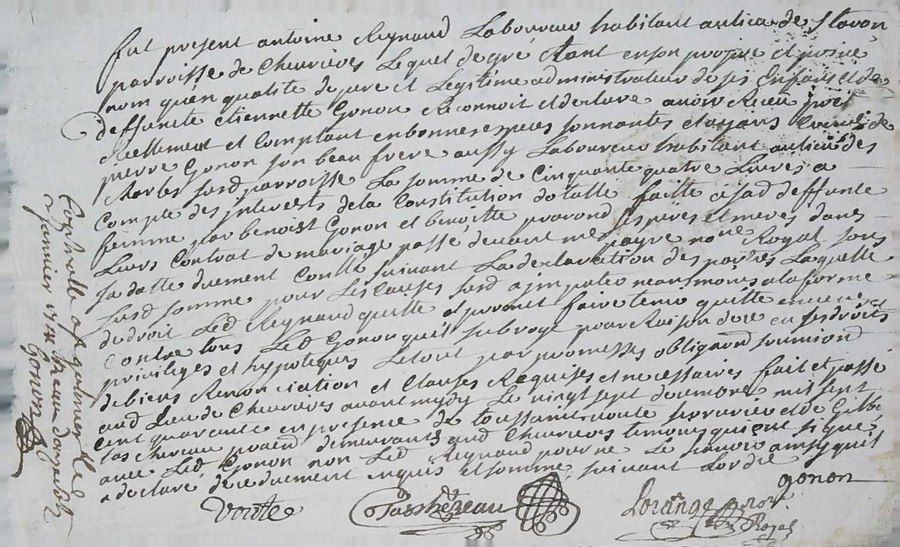 fut present antoine Reynaud Laboureur habitant au lieu de
parroisse de Chevrières Lequel de gré tant en son propre et privé
nom qu'en qualité de pere et Legitime administrateur de ses Enfans et de
deffunte Etiennette Gonon Reconnoit et declare avoir Receu
Reellement et Comptant en bonnes especes sonnantes et ayans Cours de
pierre Gonon son beau frere aussy Laboureur habitant au lieu des
susd parroisse La somme de Cinquante quatre Livres a
Compte des interests de la Constitution dotalle faitte a sad deffunte
femme par benoist Gonon et benoitte ses peres et meres dans
Leurs Contrat de mariage passé devant me payre nore Royal sous
sa datte duement Conllé suivant La declaration des parties Laquelle
susd somme pour Les Causes susd a imputer neanmoins a la forme
de droit Led Reynaud quitte et promet faire tenir quitte envers et
Contre tous Led Gonon qu'il subroge pour Raison d'ice en ses droits
privileges et hypoteques Le tout par promesses obligaond soumiond
de biens Renonciation et Clauses Requises et necessaires fait et passé
aud Lieu de Chevrières avant midy Le vingt sept decembre mil sept
cent quarante en presence de toussaint voute serrurier et de
demeurants aud Chevrières temoins qui ont signé
avec Led Gonon non Led Reynaud pour ne Le scavoir ainsy qu'il
a declaré de ce duement enquis et sommé suivant Lordre
gonon
voute
Lorange nore
Royal
Conllé a
janvier
Gonon